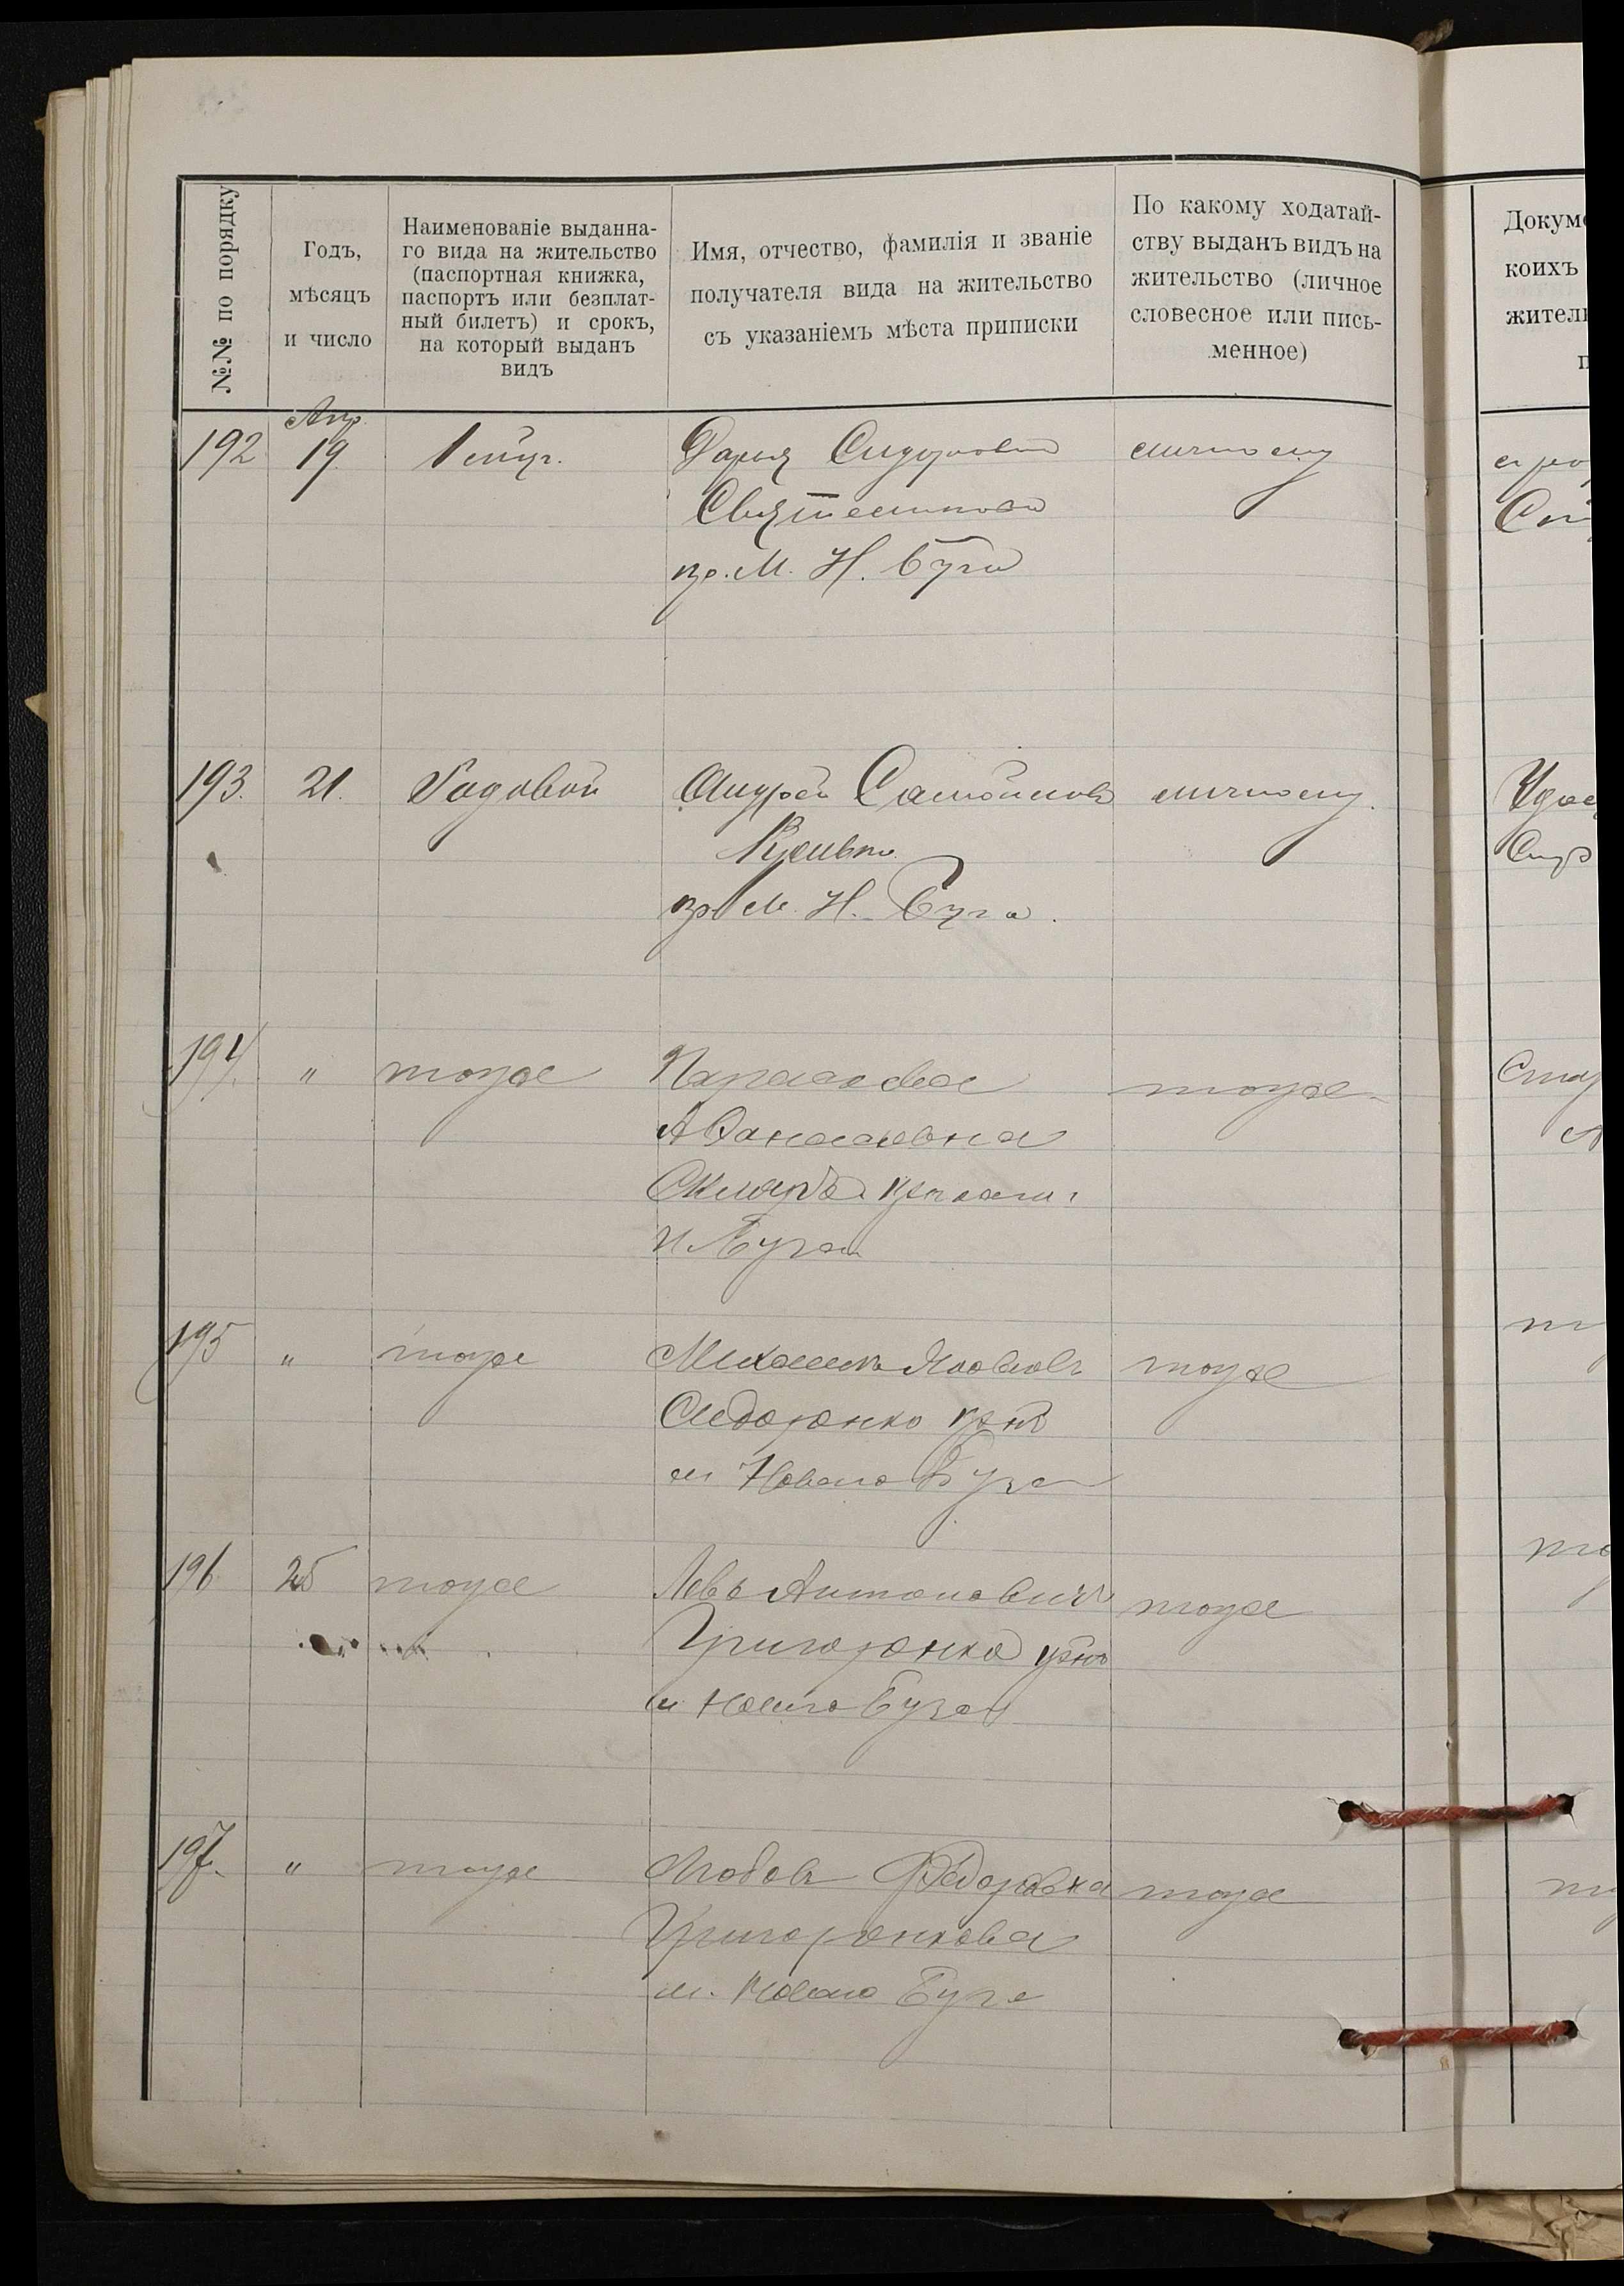 №№ по порядку
Годъ,
мѣсяцъ
и число
Наименованіе выданна-
го вида на жительство
(паспортная книжка,
паспортъ или безплат-
ный билетъ) и срокъ,
на который выданъ
видъ
Имя, отчество, фамилія и званіе
получателя вида на жительство
съ указаніемъ мѣста приписки
По какому ходатай-
ству выданъ видъ на
жительство (личное
словесное или пись-
менное)
коихъ
Апр.
192 19 Дарья Сидорова личному
кр. М. Н. Буга
193. 21. Годовой Андрей Самойловъ личному.
кр. М. Н. Буга.
194. " тоже Параскева тоже
Афанасьевна
Скляръ
Н Буга
195 " тоже Михаилъ Яковлевъ тоже
Сидоренко кр нъ
м Новаго Буга
196 25 тоже Левъ Антоновичъ тоже
Григоренко кр нъ
м Новаго Буга
197. " тоже Любовь Федоровна тоже
Григоренкова
м. Новаго Буга